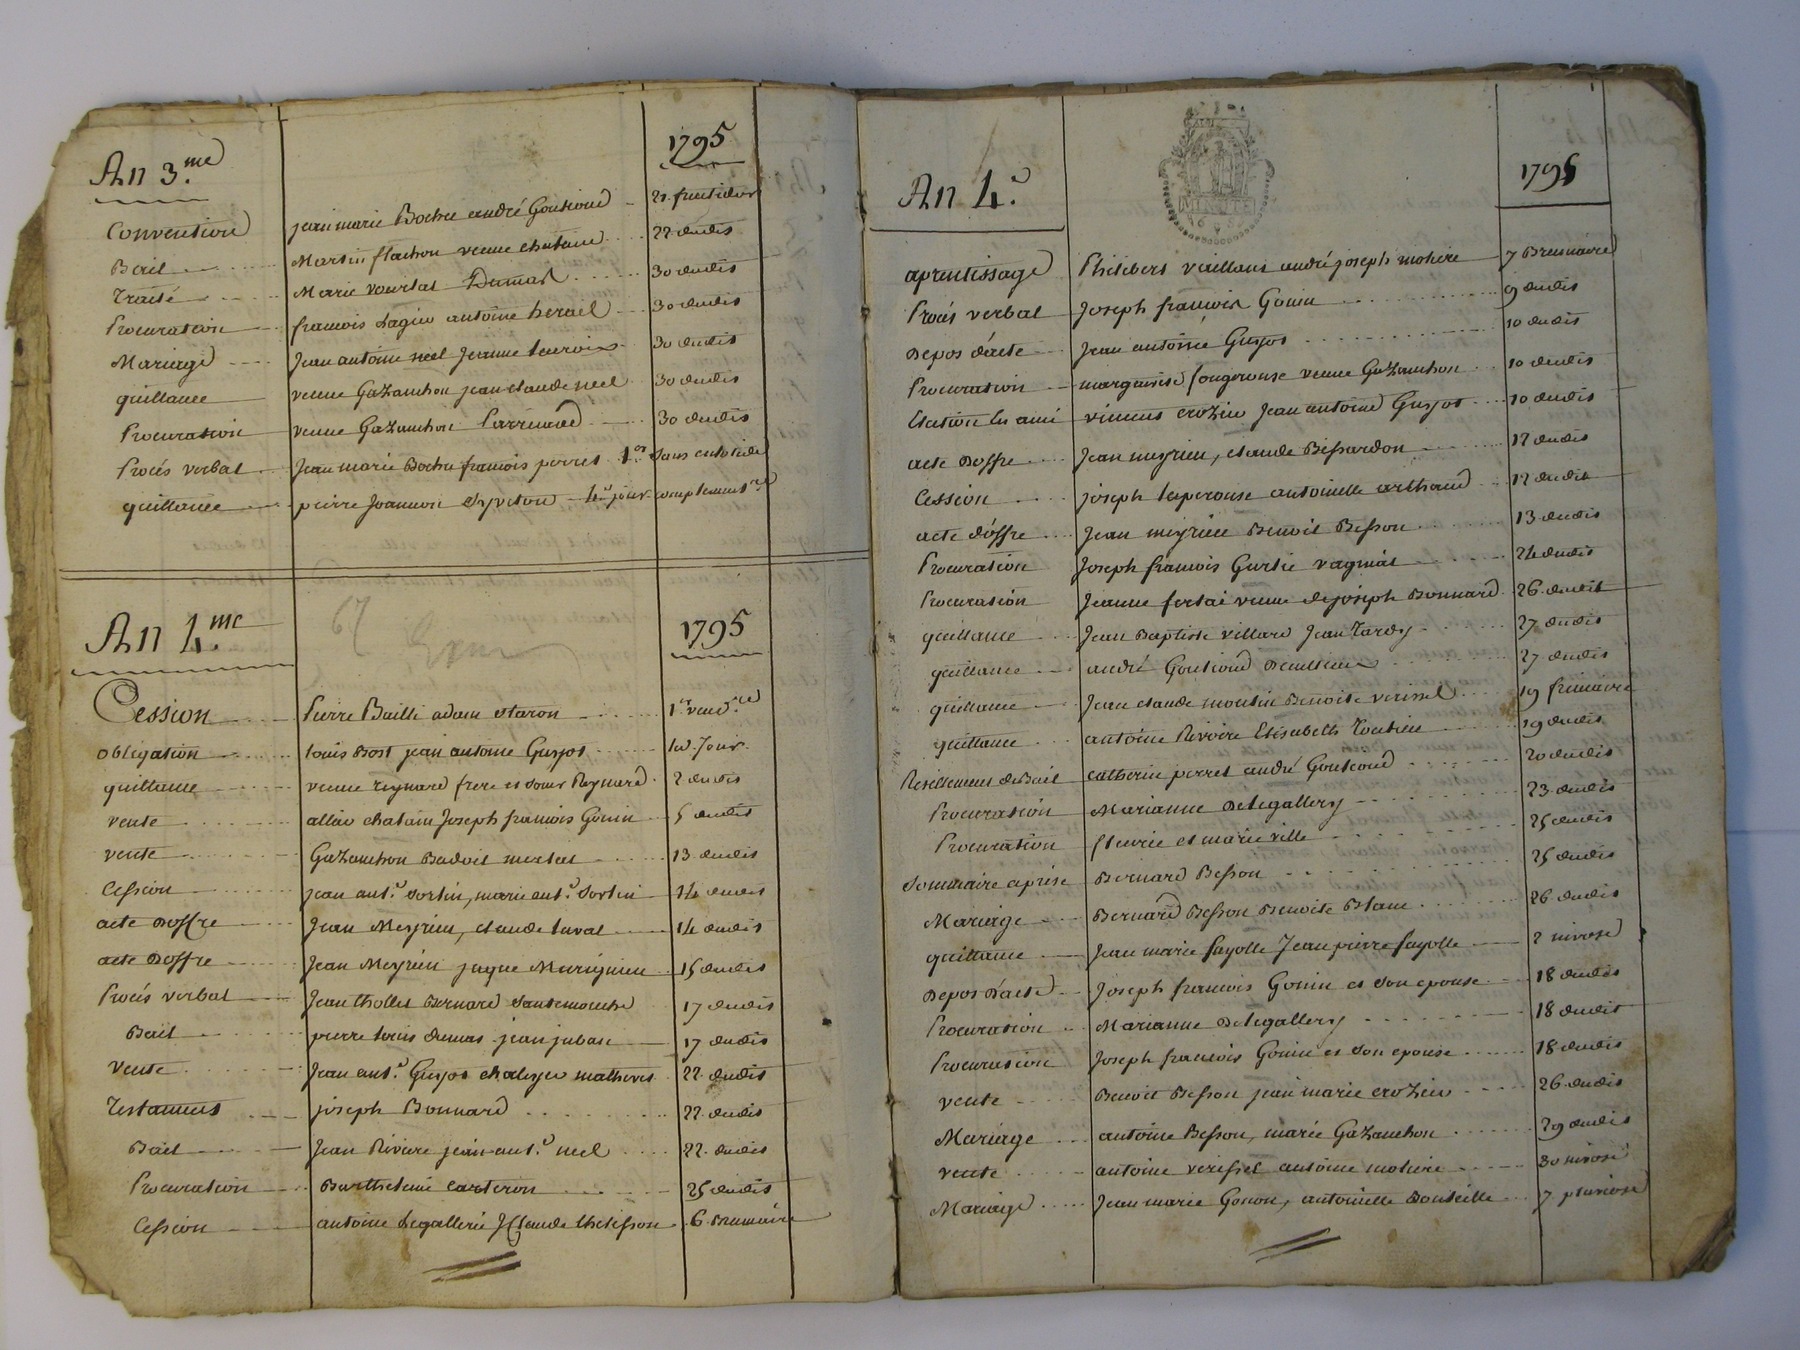 An 3.me 1795
Convention jean marie Bochu andré Goutioud 21 fructidor
Bail Martin flachon veuve chatain 22 dudit
Traité Marie 30 dudit
Procuration francois Lagier antoine 30 dudit
Mariage Jean antoine neel Jeanne 30 dudit
quittance veuve Gazanchon jean claude neel 30 dudit
Procuration veuve Gazanchon 30 dudit
Procés verbal Jean marie Bochu francois perret 1.er Sans
quittance pierre Joannon 4.e jour complement.re
An 4.me 67 1795
Cession Pierre Bailli adam 1.er vend.re
obligation Louis Bost jean antoine Guyot Jour
quittance veuve reynard frere et sœur Reynard 2 dudit
vente chatain Joseph francois Gonin 5 dudit
vente Gazanchon Badoit 13 dudit
Cession jean ant.e Sortin, marie ant.e Sortin 14 dudit
acte Doffre Jean Meyrieu, claude Laval 14 dudit
acte Doffre Jean Meyrieu jaque 15 dudit
Procés verbal Jean thollet Bernard 17 dudit
Bail pierre louis dumas jean juban 17 dudit
Vente Jean ant.e Guyot 22 dudit
Testament joseph Bonnard 22 dudit
Bail Jean Riviere jean ant.e neel 22 dudit
Procuration Barthelemi Carteron 25 dudit
Cession antoine Legallerie J Claude 6 Brumaire
An 4.e 1795
MINUTE
aprentissage Philibert vaillant andré joseph moliere 7 Brumaire
Procés verbal Joseph francois Gonin 9 dudit
Depos d'acte Jean antoine Guyot 10 dudit
Procuration margueritte fougerouse veuve Gazanchon 10 dudit
vincent crozier Jean antoine Guyot 10 dudit
acte Doffre Jean meyrieu, claude Bessardon 12 dudit
Cession joseph laperouse antoinette arthaud 12 dudit
acte d'offre Jean meyrieu Benoit Besson 13 dudit
Procuration Joseph francois Gurtié 24 dudit
Procuration Jeanne veuve de joseph Bonnard 26 dudit
quittance Jean Baptiste villard Jean Tardy 27 dudit
quittance andré Goutioud 27 dudit
quittance Jean claude moulin Benoite 19 frimaire
quittance antoine Riviere Elisabeth 19 dudit
Resellement de Bail catherin perret andré Goutioud 20 dudit
Procuration Marianne Delegallery 23 dudit
Procuration fleurie et marie ville 25 dudit
Sommaire aprise Bernard Besson 25 dudit
Mariage Bernard Besson Benoite Blanc 26 dudit
quittance Jean marie fayolle Jean pierre fayolle 2 nivose
Depos D'acte Joseph francois Gonin et son epouse 18 dudit
Procuration Marianne Delegallery 18 dudit
Procuration Joseph francois Gonin et son epouse 18 dudit
vente Benoit Besson jean marie crozier 26 dudit
Mariage antoine Besson, marie Gazanchon 29 dudit
vente antoine antoine moliere 30 nivose
Mariage Jean marie Gonon, antoinette 7 pluviose